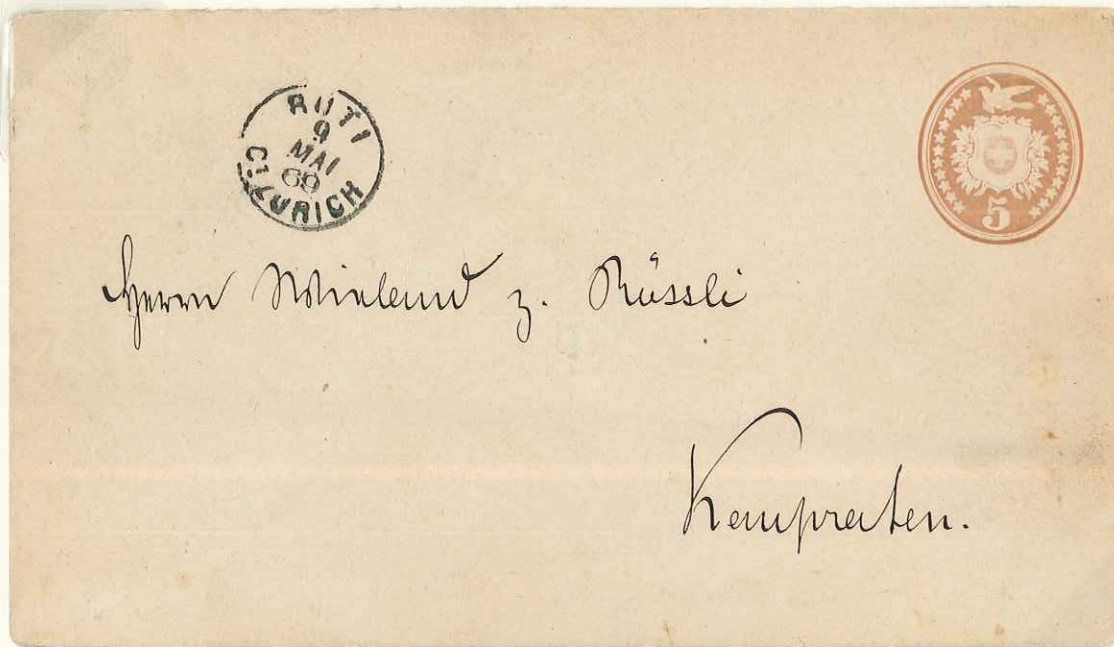 RÜTI
9
MAI
68
Ct. ZÜRICH
5
Herrn Wieland z. Rössli
Kempraten.